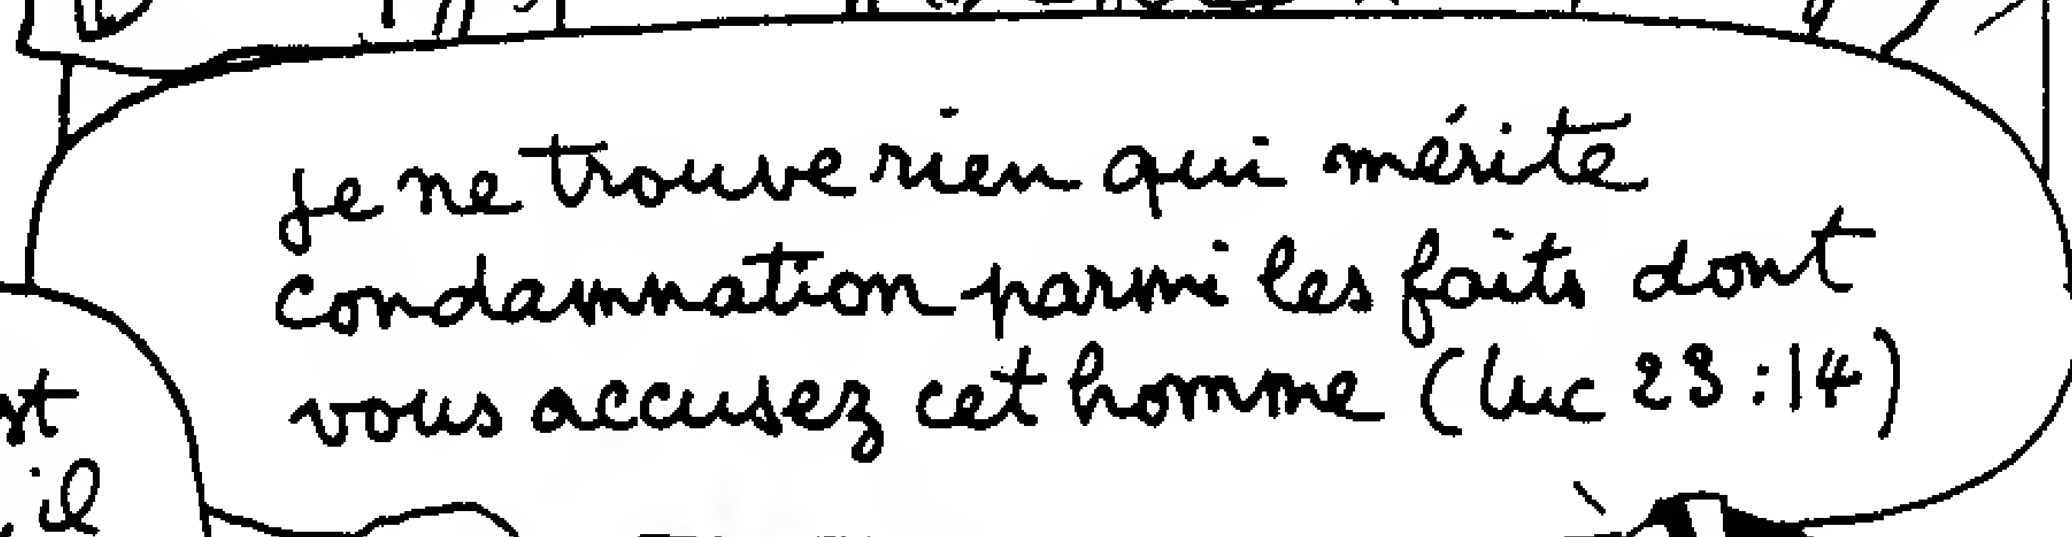 je ne trouve rien qui mérite
condamnation parmi les faits dont
vous accusez cet homme (luc 23:14)
il